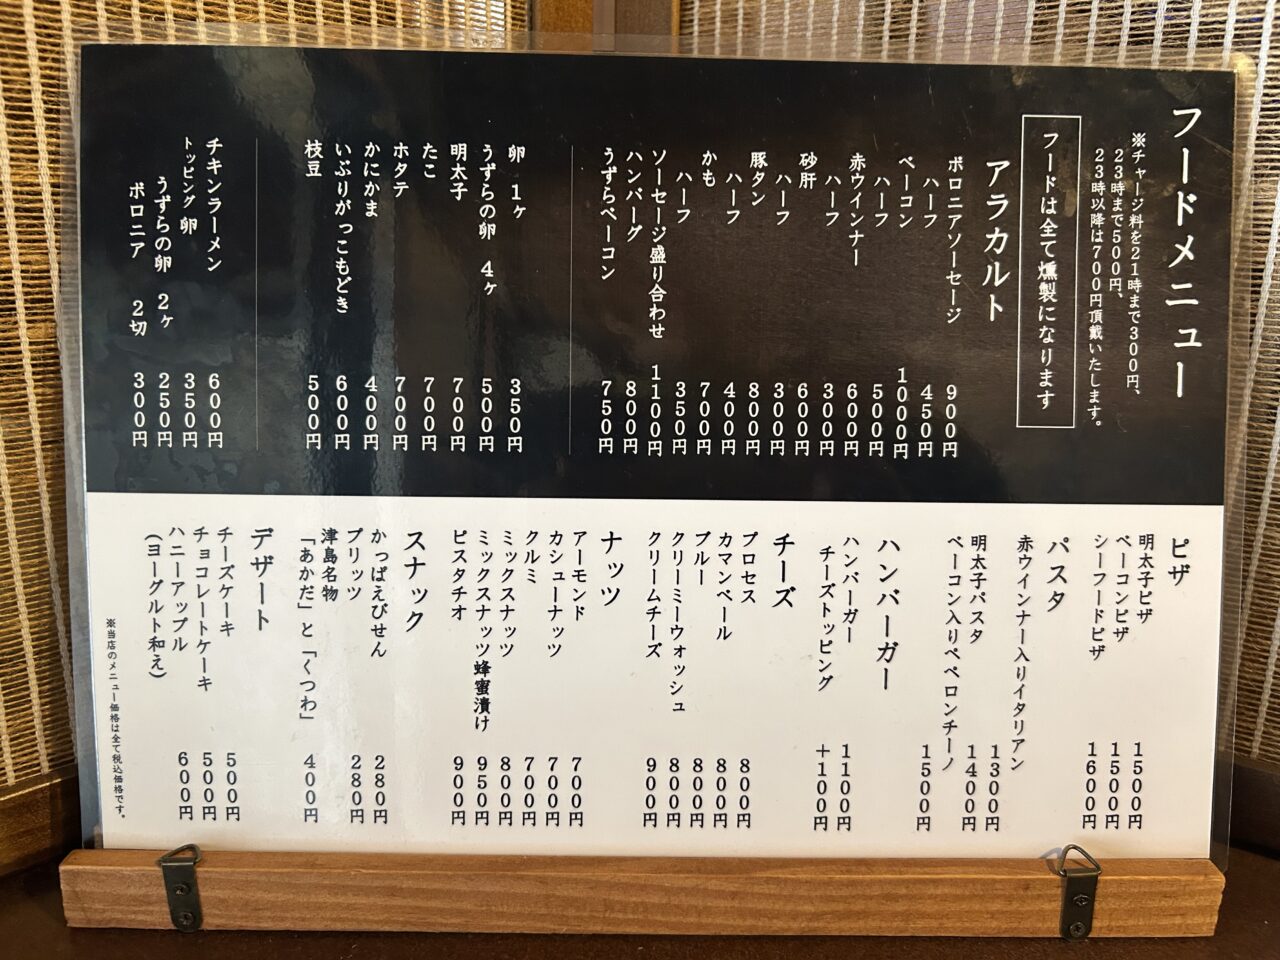 フードメニュー
※チャージ料を21時まで300円、
23時まで500円、
23時以降は700円頂戴いたします。
フードは全て燻製になります
アラカルト
ボロニアソーセージ 900円
ハーフ 450円
ベーコン 1000円
ハーフ 500円
赤ウインナー 600円
ハーフ 300円
砂肝 600円
ハーフ 300円
豚タン 800円
ハーフ 400円
かも 700円
ハーフ 350円
ソーセージ盛り合わせ 1100円
ハンバーグ 800円
うずらベーコン 750円
卵 1ヶ 350円
うずらの卵 4ヶ 500円
明太子 700円
たこ 700円
ホタテ 700円
かにかま 400円
いぶりがっこもどき 600円
枝豆 500円
チキンラーメン 600円
トッピング 卵 350円
うずらの卵 2ヶ 250円
ボロニア 2切 300円
ピザ
明太子ピザ 1500円
ベーコンピザ 1500円
シーフードピザ 1600円
パスタ
赤ウインナー入りイタリアン 1300円
明太子パスタ 1400円
ベーコン入りペペロンチーノ 1500円
ハンバーガー
ハンバーガー 1100円
チーズトッピング +100円
チーズ
プロセス 800円
カマンベール 800円
ブルー 800円
クリーミーウォッシュ 800円
クリームチーズ 900円
ナッツ
アーモンド 700円
カシューナッツ 700円
クルミ 700円
ミックスナッツ 800円
ミックスナッツ蜂蜜漬け 950円
ピスタチオ 900円
スナック
かっぱえびせん 280円
プリッツ 280円
津島名物
「あかだ」と「くつわ」 400円
デザート
チーズケーキ 500円
チョコレートケーキ 500円
ハニーアップル 600円
(ヨーグルト和え)
※当店のメニュー価格は全て税込価格です。